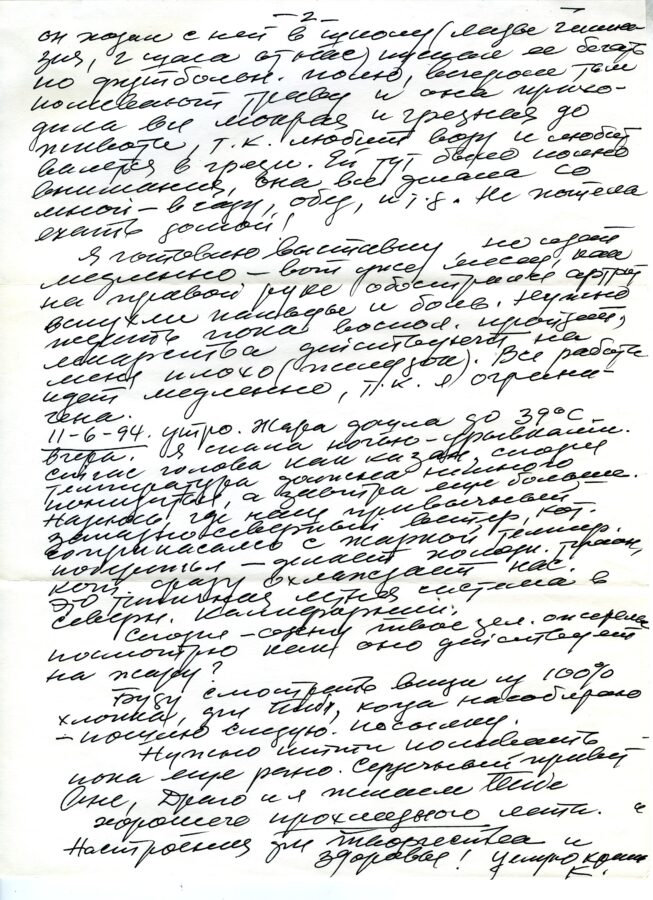 — 2 —
он ходил с ней в школу (
зия, 2 часа от нас) пускал ее бегать
по футбольн. полю, вечером там
поливают траву и она прихо-
дила вся мокрая и грязная до
живота, т.к. любит воду и любит
валятся в грязи. Ей тут было полно
внимания, она всё делала со
мной – в саду, обед, и т.д. Не хотела
ехать домой!
Я готовлю выставку, но идет
медленно – вот уже месяц как
на правой руке обострился артрит
вспухли пальцы и боль. Нужно
ждать пока воспал. пройдет,
лекарства действуют на
меня плохо (желудок). Вся работа
идет медленно, т.к. я ограни-
чена.
11-6-94. утро. Жара дошла до 39°C
вчера. Я спала ночью – урывками.
сейчас голова как казан, сегодня
температура должна немного
понизиться, а завтра еще больше.
Наконец, где наш привычный
западно-северный ветер, кот.
соприкасаясь с жаркой темпер.
побережья – делает холодн. туман,
кот. сразу охлаждает нас.
Это типичная летняя система в
северн. Калифорнии.
Сегодня – одену твое зел. ожерелье
посмотрю как оно действует
на жару?
Буду смотреть вещи из 100%
хлопка, для тебя, когда насобираю
– пошлю следую. посылку.
Нужно итти поливать –
пока еще рано. Сердечный привет
Оле, Драго и я желаем тебе
хорошего прохладного лета. и
Настроения для творчества и
здоровья! Целую крепко
К.